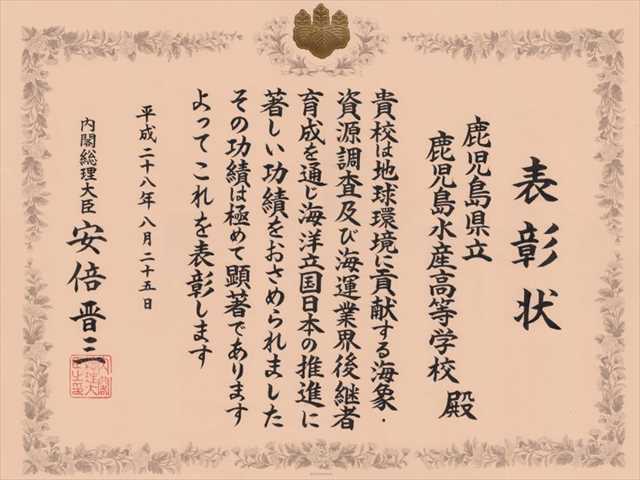 表彰状
鹿児島県立
鹿児島水産高等学校 殿
貴校は地球環境に貢献する海象・
資源調査及び海運業界後継者
育成を通じ海洋立国日本の推進に
著しい功績をおさめられました
その功績は極めて顕著であります
よってこれを表彰します
平成二十八年八月二十五日
内閣総理大臣 安倍晋三